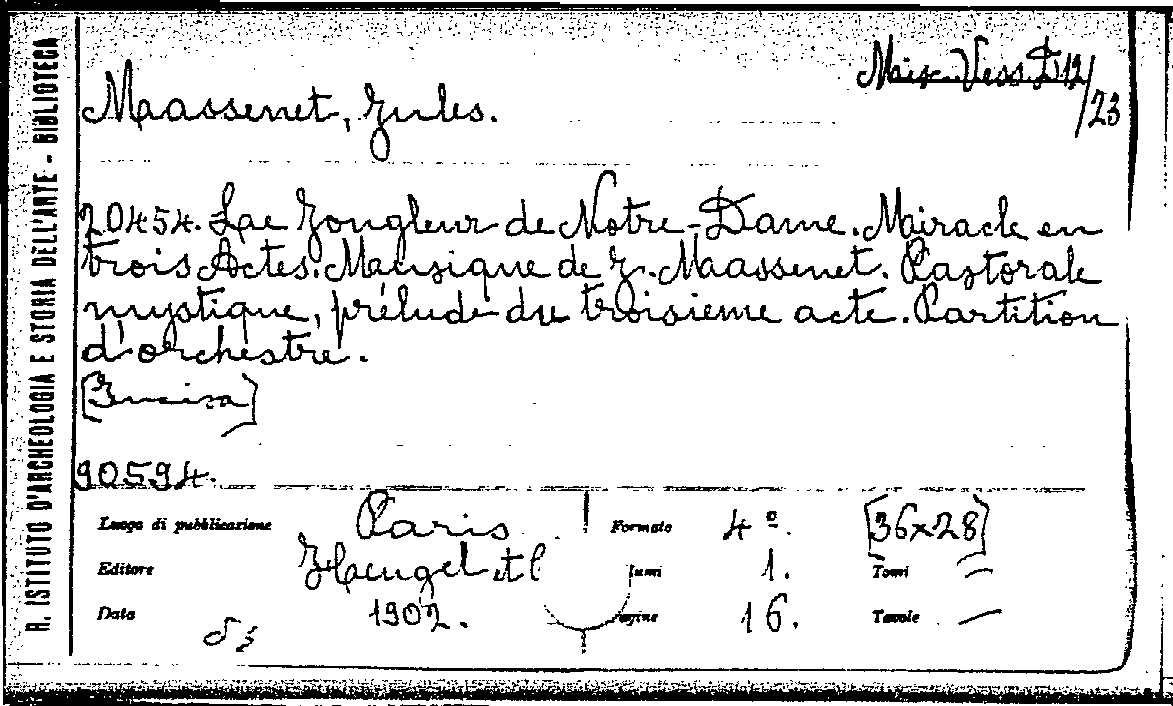 R. ISTITUTO D'ARCHEOLOGIA E STORIA DELL'ARTE - BIBLIOTECA
Misc. Vess. D 12/23
Massenet, Jules.
20454. Le Jongleur de Notre-Dame. Miracle en
trois Actes. Musique de J. Massenet. Pastorale
mystique, prélude du troisieme acte. Partition
d'orchestre.
90594.
Luogo di pubblicazione Paris Formato 4º. [36x28]
Editore Heugel et C lumi 1. Tomi —
Data 1902. agine 16. Tavole —